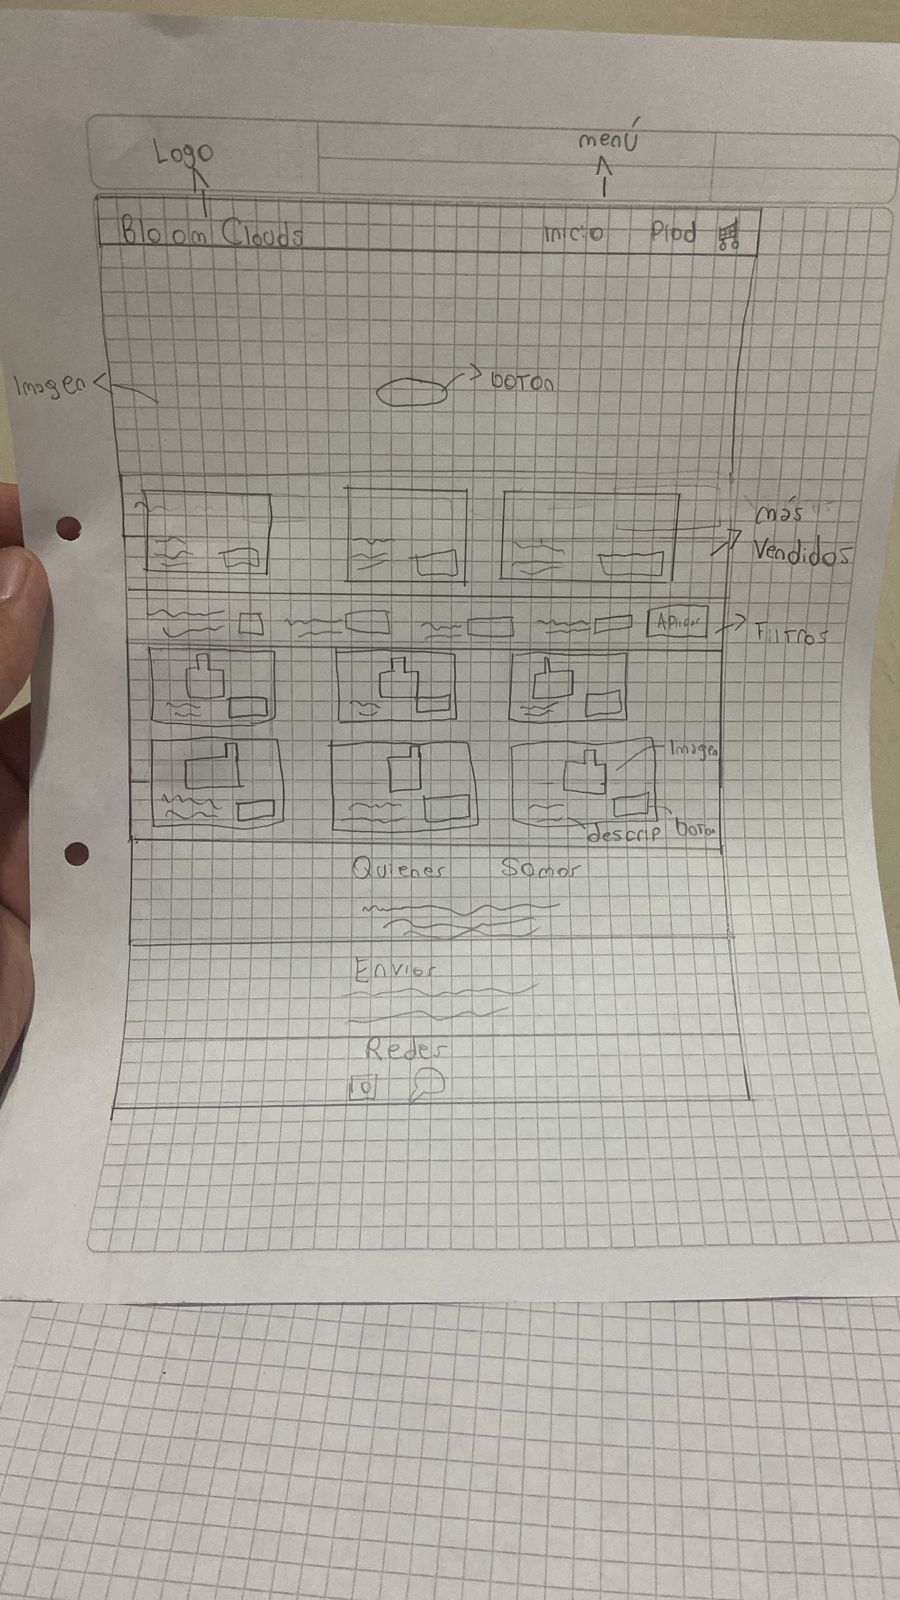 Logo
menú
Bloom Clouds
Inicio Prod
Imagen
boton
más
Vendidos
Aplicar
Filtros
Imagen
descrip
boton
Quienes Somos
Envios
Redes